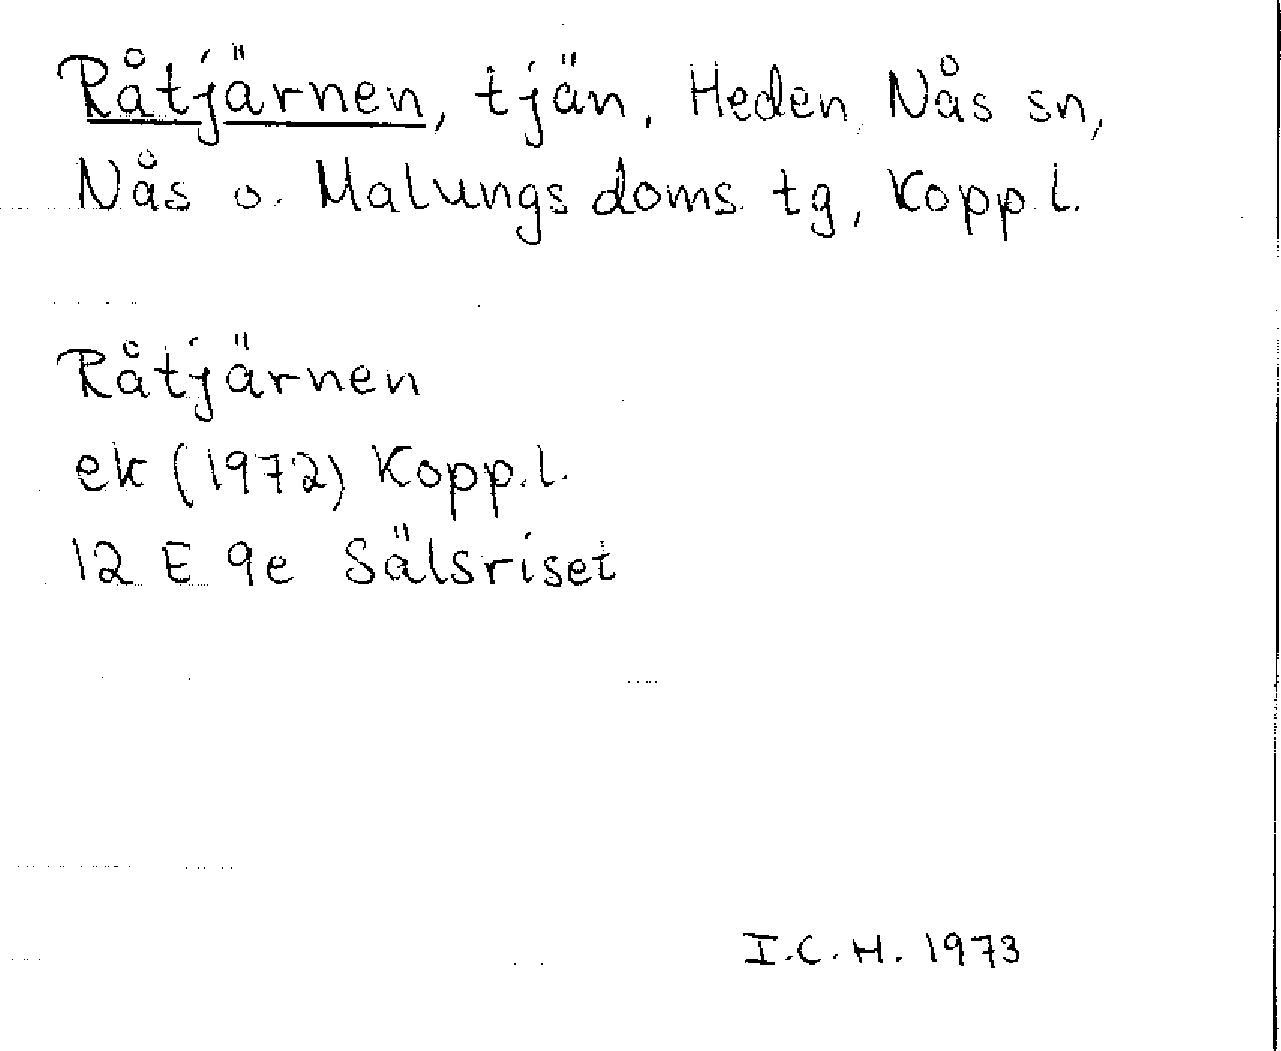 Råtjärnen, tjän, Heden, Nås sn,
Nås o. Malungs doms. tg, Kopp. l.
Råtjärnen
ek (1972) Kopp. l.
12 E 9e Sälsriset
I.C.H. 1973